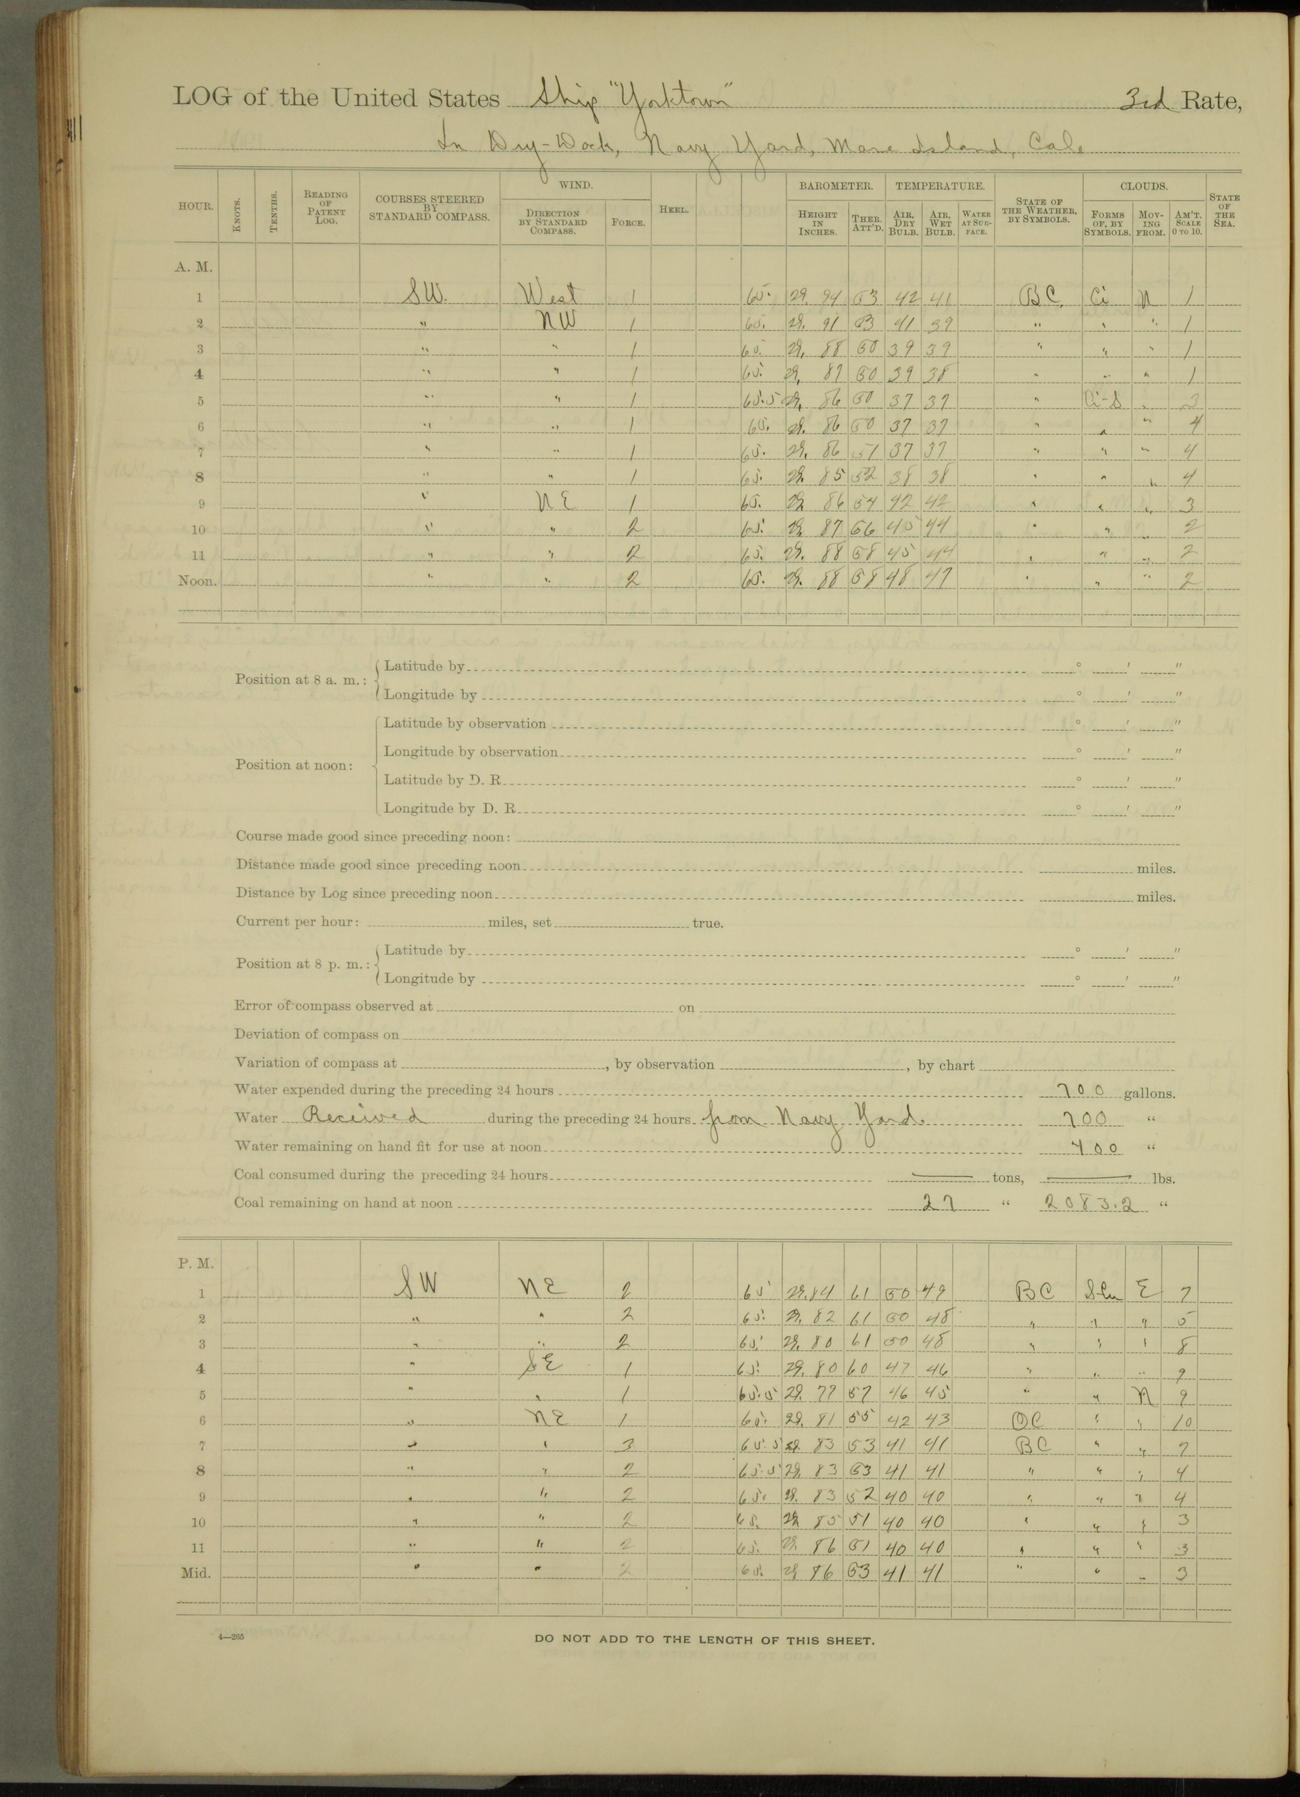 LOG of the United States Ship "Yorktown" 3rd Rate,
In Dry-Dock, Navy Yard, Mare Island, Cal.
HOUR. KNOTS. TENTHS. READING OF PATENT LOG. COURSES STEERED BY STANDARD COMPASS. WIND. DIRECTION BY STANDARD COMPASS. FORCE. HEEL. BAROMETER. HEIGHT IN INCHES. THER. ATT'D. TEMPERATURE. AIR, DRY BULB. AIR, WET BULB. WATER AT SURFACE. STATE OF THE WEATHER, BY SYMBOLS. CLOUDS. FORMS OF, BY SYMBOLS. MOVING FROM. AM'T. SCALE 0 TO 10. STATE OF THE SEA.
A. M.
1 SW. West 1 65. 29. 94 53 42 41 BC. Ci N 1
2 " NW 1 65. 29. 91 53 41 39 " " " 1
3 " " 1 65. 29. 88 50 39 39 " " " 1
4 " " 1 65. 29. 87 50 39 38 " " " 1
5 " " 1 65.5 29. 86 50 37 37 " Ci-S " 3
6 " " 1 65. 29. 86 50 37 37 " " " 4
7 " " 1 65. 29. 86 51 37 37 " " " 4
8 " " 1 65. 29. 85 52 38 38 " " " 4
9 " NE 1 65. 29. 86 54 42 42 " " " 3
10 " " 2 65. 29. 87 56 45 44 " " " 2
11 " " 2 65. 29. 88 58 45 44 " " " 2
Noon. " " 2 65. 29. 88 58 48 47 " " " 2
Position at 8 a. m.: Latitude by ° ' "
Longitude by ° ' "
Position at noon: Latitude by observation ° ' "
Longitude by observation ° ' "
Latitude by D. R. ° ' "
Longitude by D. R. ° ' "
Course made good since preceding noon:
Distance made good since preceding noon miles.
Distance by Log since preceding noon miles.
Current per hour: miles, set true.
Position at 8 p. m.: Latitude by ° ' "
Longitude by ° ' "
Error of compass observed at on
Deviation of compass on
Variation of compass at , by observation , by chart
Water expended during the preceding 24 hours 700 gallons.
Water Received during the preceding 24 hours from Navy Yard. 700 "
Water remaining on hand fit for use at noon 400 "
Coal consumed during the preceding 24 hours — tons, — lbs.
Coal remaining on hand at noon 27 " 2083.2 "
P. M.
1 SW NE 2 65 29.84 61 50 49 BC S-Cu E 7
2 " " 2 65. 29. 82 61 50 48 " " " 5
3 " " 2 65. 29. 80 61 50 48 " " " 8
4 " SE 1 65. 29. 80 60 47 46 " " " 9
5 " " 1 65.5 29. 77 57 46 45 " " N 9
6 " NE 1 65. 29. 81 55 42 43 OC " " 10
7 " " 3 65.5 29. 83 53 41 41 BC " " 7
8 " " 2 65.5 29. 83 53 41 41 " " " 4
9 " " 2 65. 29. 83 52 40 40 " " " 4
10 " " 2 65. 29. 85 51 40 40 " " " 3
11 " " 2 65. 29. 86 51 40 40 " " " 3
Mid. " " 2 65. 29. 86 53 41 41 " " " 3
4—265
DO NOT ADD TO THE LENGTH OF THIS SHEET.